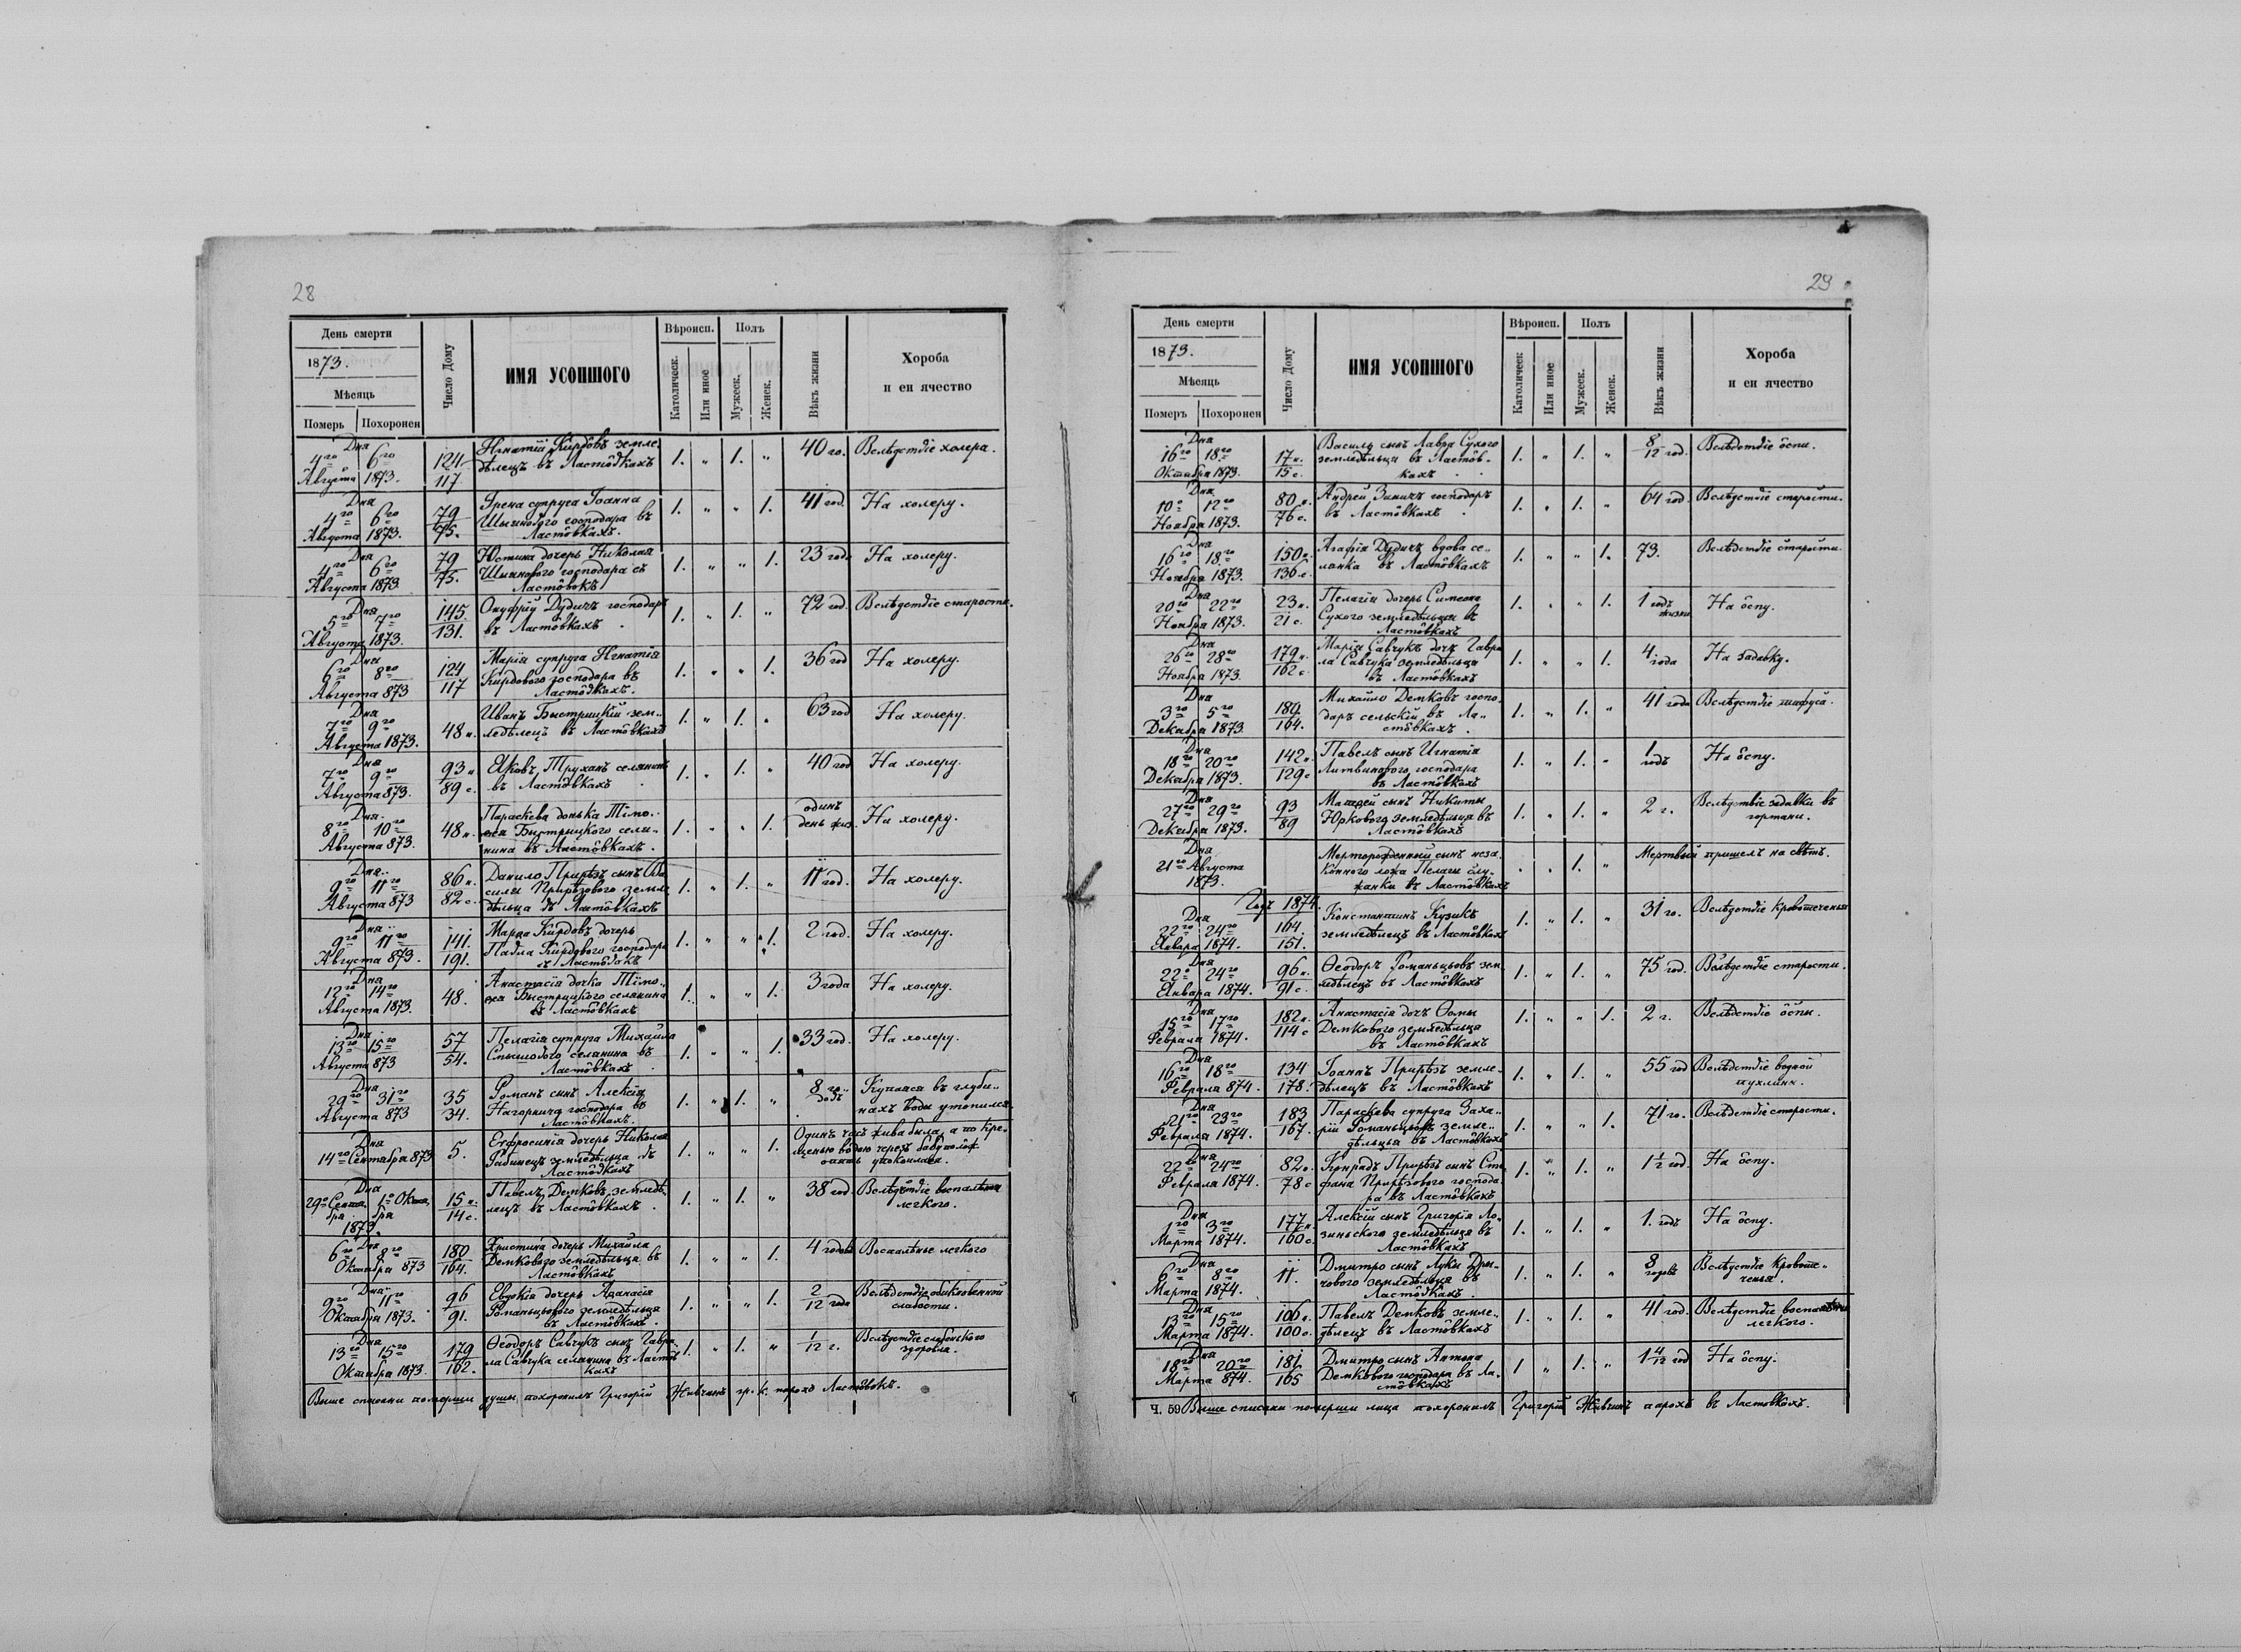 28
День смерти
1873.
Мѣсяць
Померъ Похоронен
Число Дому
ИМЯ УСОПШОГО
Вѣроисп.
Католическ.
Или иное
Полъ
Мужеск.
Женск.
Вѣкъ жизни
Хороба
и еи ячество
Дня
4го 6го
Августа 1873.
124
117
Игнатій Кирдôвъ земле-
дѣлецъ въ Ластôвкахъ
1. „ 1. „
40 го.
Вслѣдствіе холера.
Дня
4го 6го
Августа 1873.
79
75.
Ірена супруга Іоанна
господара въ
Ластôвкахъ.
1. „ „ 1.
41 год
На холеру.
Дня
4го 6го
Августа 1873
79
75.
Юстина дочерь Николая
господара съ
Ластôвокъ
1. „ „ 1.
23 года
На холеру.
Дня
5го 7го
Августа 1873.
145.
131.
Онуфрій Дудичъ господарь
въ Ластôвкахъ
1. „ 1. „
72 год.
Вслѣдствіе старости.
Дня
6го 8го
Августа 873
124
117
Марія супруга Игнатія
Кирдового господара въ
Ластôвкахъ.
1. „ „ 1.
36 год
На холеру.
Дня
7го 9го
Августа 1873.
48 н.
Иванъ Быстрицкій зем-
ледѣлецъ въ Ластôвкахъ
1. „ 1. „
63 год
На холеру.
Дня
7го 9го
Августа 873.
93 н
89 с.
Яковъ Труханъ селянинъ
въ Ластôвкахъ
1. „ 1. „
40 год
На холеру.
Дня
8го 10го
Августа 873.
48 н.
Параскева донька Тімо-
Быстрицкого селя-
нина въ Ластôвкахъ.
1. „ „ 1.
одинъ
день жиз.
На холеру.
Дня
9го 11го
Августа 873
86 н.
82 с.
Данило Прирѣзъ сынъ Ва-
силя Прирѣзового земле
дѣльца въ Ластôвкахъ
1. „ 1. „
11 год.
На холеру.
Дня
9го 11го
Августа 873.
141.
191.
Марѳа Кирдовъ дочерь
Павла Кирдового господара
Ластôвокъ
1. „ „ 1.
2 год.
На холеру.
Дня
12го 14го
Августа 1873.
48.
Анастасія дочка Тімо-
Быстрицкого селянина
въ Ластôвкахъ
1. „ „ 1.
3 года
На холеру.
Дня
13го 15го
Августа 873
57
54.
Пелагія супруга Михайла
селянина въ
Ластôвкахъ
1. „ „ 1.
33 год.
На холеру.
Дня
29го 31го
Августа 873
35
34.
Романъ сынъ Алексія
Нагорнича господара въ
Ластôвкахъ.
1. „ 1. „
8 го-
довъ
Купаяся въ глуби-
нахъ воды утопился.
Дня
14го Сентабра 873
5.
Евфросинія дочерь Николая
земледѣльца въ
Ластôвкахъ
1. „ „ 1.
Одинъ часъ жива была, а по кре-
щенью водою черезъ бабу
упокоилася.
Дня
29го Сента 1го Октя
бра бра
1873
15 н.
14 с.
Павелъ Демковъ земледѣ-
лецъ въ Ластôвкахъ.
1. „ 1. „
38 год
Вслѣдствіе воспаленія
легкого.
Дня
6го 8го
Октабра 873
180
164.
Христина дочерь Михайла
Демкового земледѣльца въ
Ластôвкахъ
1. „ „ 1.
4 годовъ
Воспаленье легкого
Дня
9го 11го
Октабра 1873.
96
91.
Евдокія дочерь Аѳанасія
Романьцьового земледѣльца
въ Ластôвкахъ.
1. „ „ 1.
2/12 года
Вслѣдствіе обыкновенной
слабости.
Дня
13го 15го
Октабра 1873.
179
162.
Ѳеодоръ Савчукъ сынъ Гаври-
ла Савчука селянина въ Ластô
кахъ
1. „ 1. „
1/12 г.
Вслѣдствіе слабенького
здоровля.
Выше списани померши душы, похоронилъ Григорій Жывчынъ гр. к. парохъ Ластôвокъ.
29
День смерти
1873.
Мѣсяць
Померъ Похоронен
Число Дому
ИМЯ УСОПШОГО
Вѣроисп.
Католическ
Или иное
Полъ
Мужеск.
Женск.
Вѣкъ жизни
Хороба
и еи ячество
Дня
16го 18го
Октабра 1873.
17 н.
15 с.
Василь сынъ Лавра Сухого
земледѣльца въ Ластôв-
кахъ
1. „ 1. „
8/12 год.
Вслѣдствіе ôспи.
Дня
10го 12го
Ноября 1873.
80 н.
76 с.
Андрей Зиничъ господаръ
въ Ластôвкахъ
1. „ 1. „
64 год.
Вслѣдствіе старости.
Дня
16го 18го
Ноября 1873.
150 н.
136 с.
Агафія Дудичъ вдова се-
лянка въ Ластôвкахъ
1. „ „ 1.
73.
Вслѣдствіе старости.
Дня
20го 22го
Ноября 1873.
23 н.
21 с.
Пелагія дочерь Симеона
Сухого земледѣльця въ
Ластôвкахъ
1. „ „ 1.
1 годъ
жизни
На ôспу.
Дня
26го 28го
Ноября 1873.
179 н.
162 с.
Марія Савчукъ дочъ Гаври
ла Савчука земледѣльца
въ Ластôвкахъ
1. „ „ 1.
4
года
На задавку.
Дня
3го 5го
Декабра 1873.
180
164.
Михайло Демковъ госпо-
даръ сельскій въ Ла-
стôвкахъ.
1. „ 1. „
41 года
Вслѣдствіе тифуса.
Дня
18го 20го
Декабра 1873.
142 н.
129 с
Павелъ сынъ Игнатія
Литвинового господара
въ Ластôвкахъ
1. „ 1. „
1
годъ
На ôспу.
Дня
27го 29го
Декабра 1873.
93
89
Матѳей сынъ Никиты
Юркового земледѣльца въ
Ластôвкахъ
1. „ 1. „
2 г.
Вслѣдствіе задавки въ
гортани.
Дня
21го Августа
1873.
Мерторожденный сынъ неза-
конного ложа Пелаги слу-
жанки въ Ластôвкахъ
„ „ 1. „
Мертвый пришелъ на свѣтъ.
Годъ 1874.
Дня
22го 24го
Января 1874.
164
151.
Константинъ Кузикъ
земледѣлецъ въ Ластôвкахъ
1. „ 1. „
31 го.
Вслѣдствіе кровотеченья
Дня
22го 24го
Января 1874.
96 н.
91 с.
Ѳеодоръ Романьцьовъ зем
ледѣлецъ въ Ластôвкахъ
1. „ 1. „
75 год.
Вслѣдствіе старости.
Дня
15го 17го
Февраля 1874.
182 н.
114 с
Анастасія дочъ Ѳомы
Демкового земледѣльца
въ Ластôвкахъ
1. „ „ 1.
2 г.
Вслѣдствіе ôспы.
Дня
16го 18го
Февраля 874.
134
178.
Іоаннъ Прирѣзъ земле-
дѣлецъ въ Ластôвкахъ
1. „ 1. „
55 год
Вслѣдствіе водной
пухлины.
Дня
21го 23го
Февраля 1874.
183
167.
Параскева супруга Заха-
рій Романьцьовъ земле-
дѣльца въ Ластôвкахъ
1. „ „ 1.
71 го.
Вслѣдствіе старости.
Дня
22го 24го
Февраля 1874.
82 н.
78 с
Конрадъ Прирѣзъ сынъ Сте
фана Прирѣзового господа
ра въ Ластôвкахъ
1. „ 1. „
1 1/2 год
На ôспу.
Дня
1го 3го
Марта 1874.
177 н.
160 с.
Алексій сынъ Григорія Ло-
зиньского земледѣльца въ
Ластôвкахъ
1. „ 1. „
1. годъ
На ôспу.
Дня
6го 8го
Марта 1874.
11.
Дмитро сынъ Луки
земледѣльца въ
Ластôвкахъ.
1. „ 1. „
8
годовъ
Вслѣдствіе кровоте-
ченья.
Дня
13го 15го
Марта 1874.
106 н.
100 с.
Павелъ Демковъ земле-
дѣлецъ въ Ластôвкахъ
1. „ 1. „
41 год.
Вслѣдствіе воспаленія
легкого.
Дня
18го 20го
Марта 874.
181
165
Дмитро сынъ Антона
Демкового господара въ Ла-
стôвкахъ
1 „ 1. „
1 4/12 год
На ôспу.
Ч. 59 Выше списани померши лица похоронилъ Григорій Жывчынъ парохъ въ Ластôвкахъ.